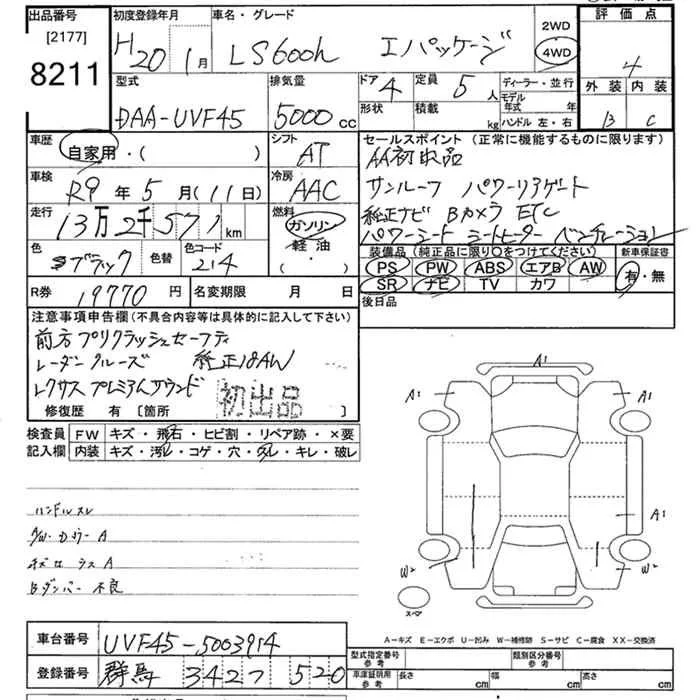 出品番号 初度登録年月 車名・グレード 2WD 評価点
[2177] H20年 1月 LS600h Iパッケージ 4WD 4
8211
型式 排気量 ドア 4 定員 5人 ディーラー・並行 外装 内装
DAA-UVF45 5000cc 形状 積載 kg モデル年式 年 B C
ハンドル 左・右
車歴 自家用・( ) シフト AT セールスポイント(正常に機能するものに限ります)
AA初出品
車検 R9年5月(11日) 冷房 AAC サンルーフ パワーリアゲート
走行 13万2千571km 燃料 ガソリン 軽油 ( ・ ) 純正ナビ Bカメラ ETC
パワーシート シートヒーター ベンチレーション
色 ブラック 色替 色コード 214 装備品(純正品に限り○をつけてください) 新車保証書
PS PW ABS エアB AW 有・無
R券 19770円 名変期限 月 日 SR ナビ TV カワ
注意事項申告欄(不具合内容等は具体的に記入して下さい) 後日品
前方プリクラッシュセーフティ
レーダークルーズ 純正18AW
レクサスプレミアムサウンド
初出品
修復歴 有 [箇所 ]
検査員 FW キズ・飛石・ヒビ割・リペア跡・×要
記入欄 内装 キズ・汚レ・コゲ・穴・スレ・キレ・破レ
ハンドルスレ
A
A
Bダンパー不良
A1
A1 A1
A1
W2 W2
スペア
A-キズ E-エクボ U-凹み W-補修跡 S-サビ C-腐食 XX-交換済
車台番号 UVF45-5003914
登録番号 群馬 342 520
型式指定番号 参考 類別区分番号 参考
車庫証明用 参考 長さ cm 幅 cm 高さ cm